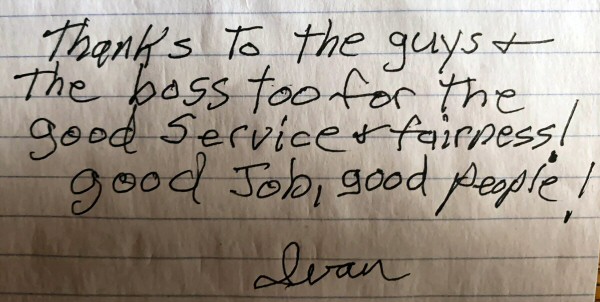 Thanks To the guys +
The boss too for the
good Service + fairness!
good Job, good people!
Ivan